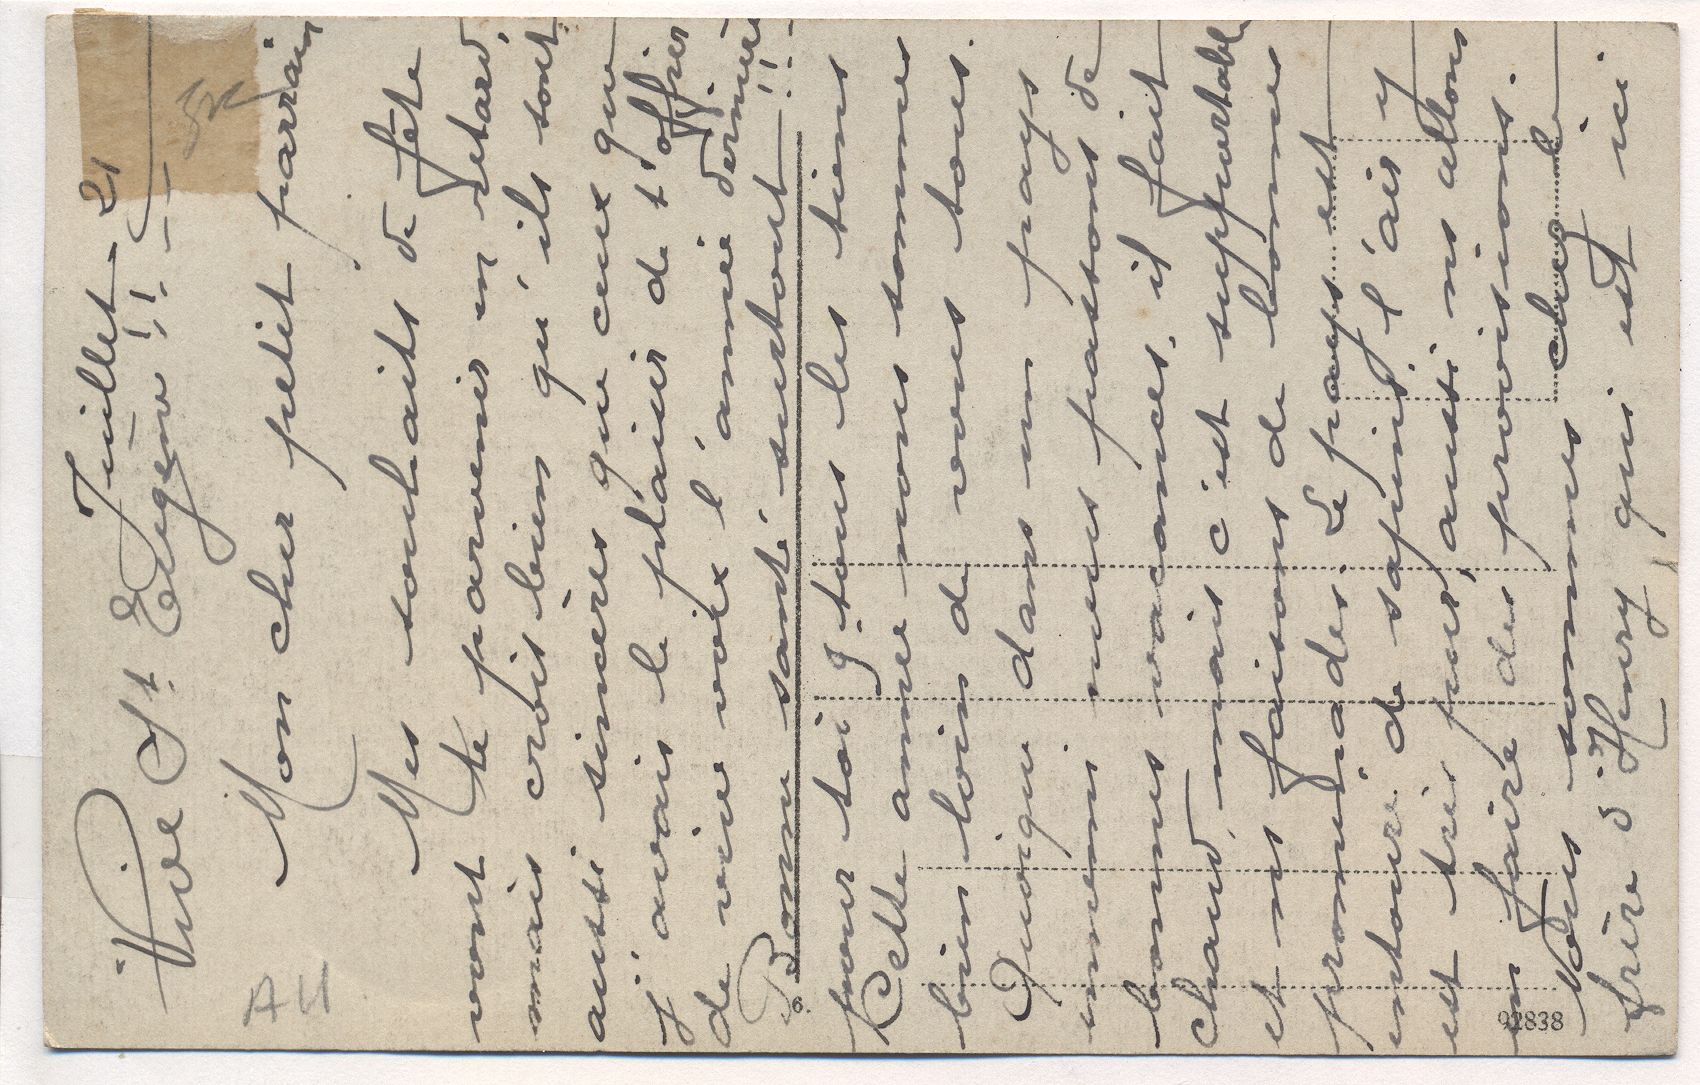 Juillet - 21
Vive St Eugène !!!
Mon cher petit parrain
Mes souhaits de fête
vont te parvenir en retard,
mais crois bien qu'ils sont
aussi sincères que ceux que
j'avais le plaisir de t'offrir
de vive voix l'année dernière
Bonne santé surtout !!!
pour toi & tous les tiens
Cette année nous sommes
bien loin de vous tous.
Quoique dans un pays
ennemi nous passons de
bonnes vacances, il fait
chaud, mais c'est supportable
et ns faisons de bonnes
promenades. Le pays est
entouré de sapins, l'air y
est très pur, aussi ns allons
en faire des provisions.
Nous sommes chez le
frère d'Henry qui est ici
AH
92838